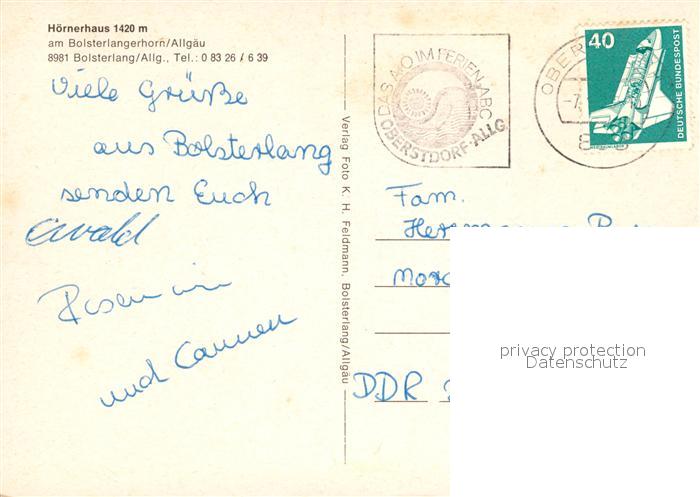 Hörnerhaus 1420 m
am Bolsterlangerhorn/Allgäu
8981 Bolsterlang/Allg., Tel.: 0 83 26 / 6 39
Viele Grüße
aus Bolsterlang
senden Euch
Ewald
Rosemarie
und Carmen
Verlag Foto K. H. Feldmann, Bolsterlang/Allgäu
DAS A·O IM FERIEN-ABC
OBERSTDORF·ALLG
OBER
-7.
8
40
DEUTSCHE BUNDESPOST
Fam.
DDR
privacy protection
Datenschutz